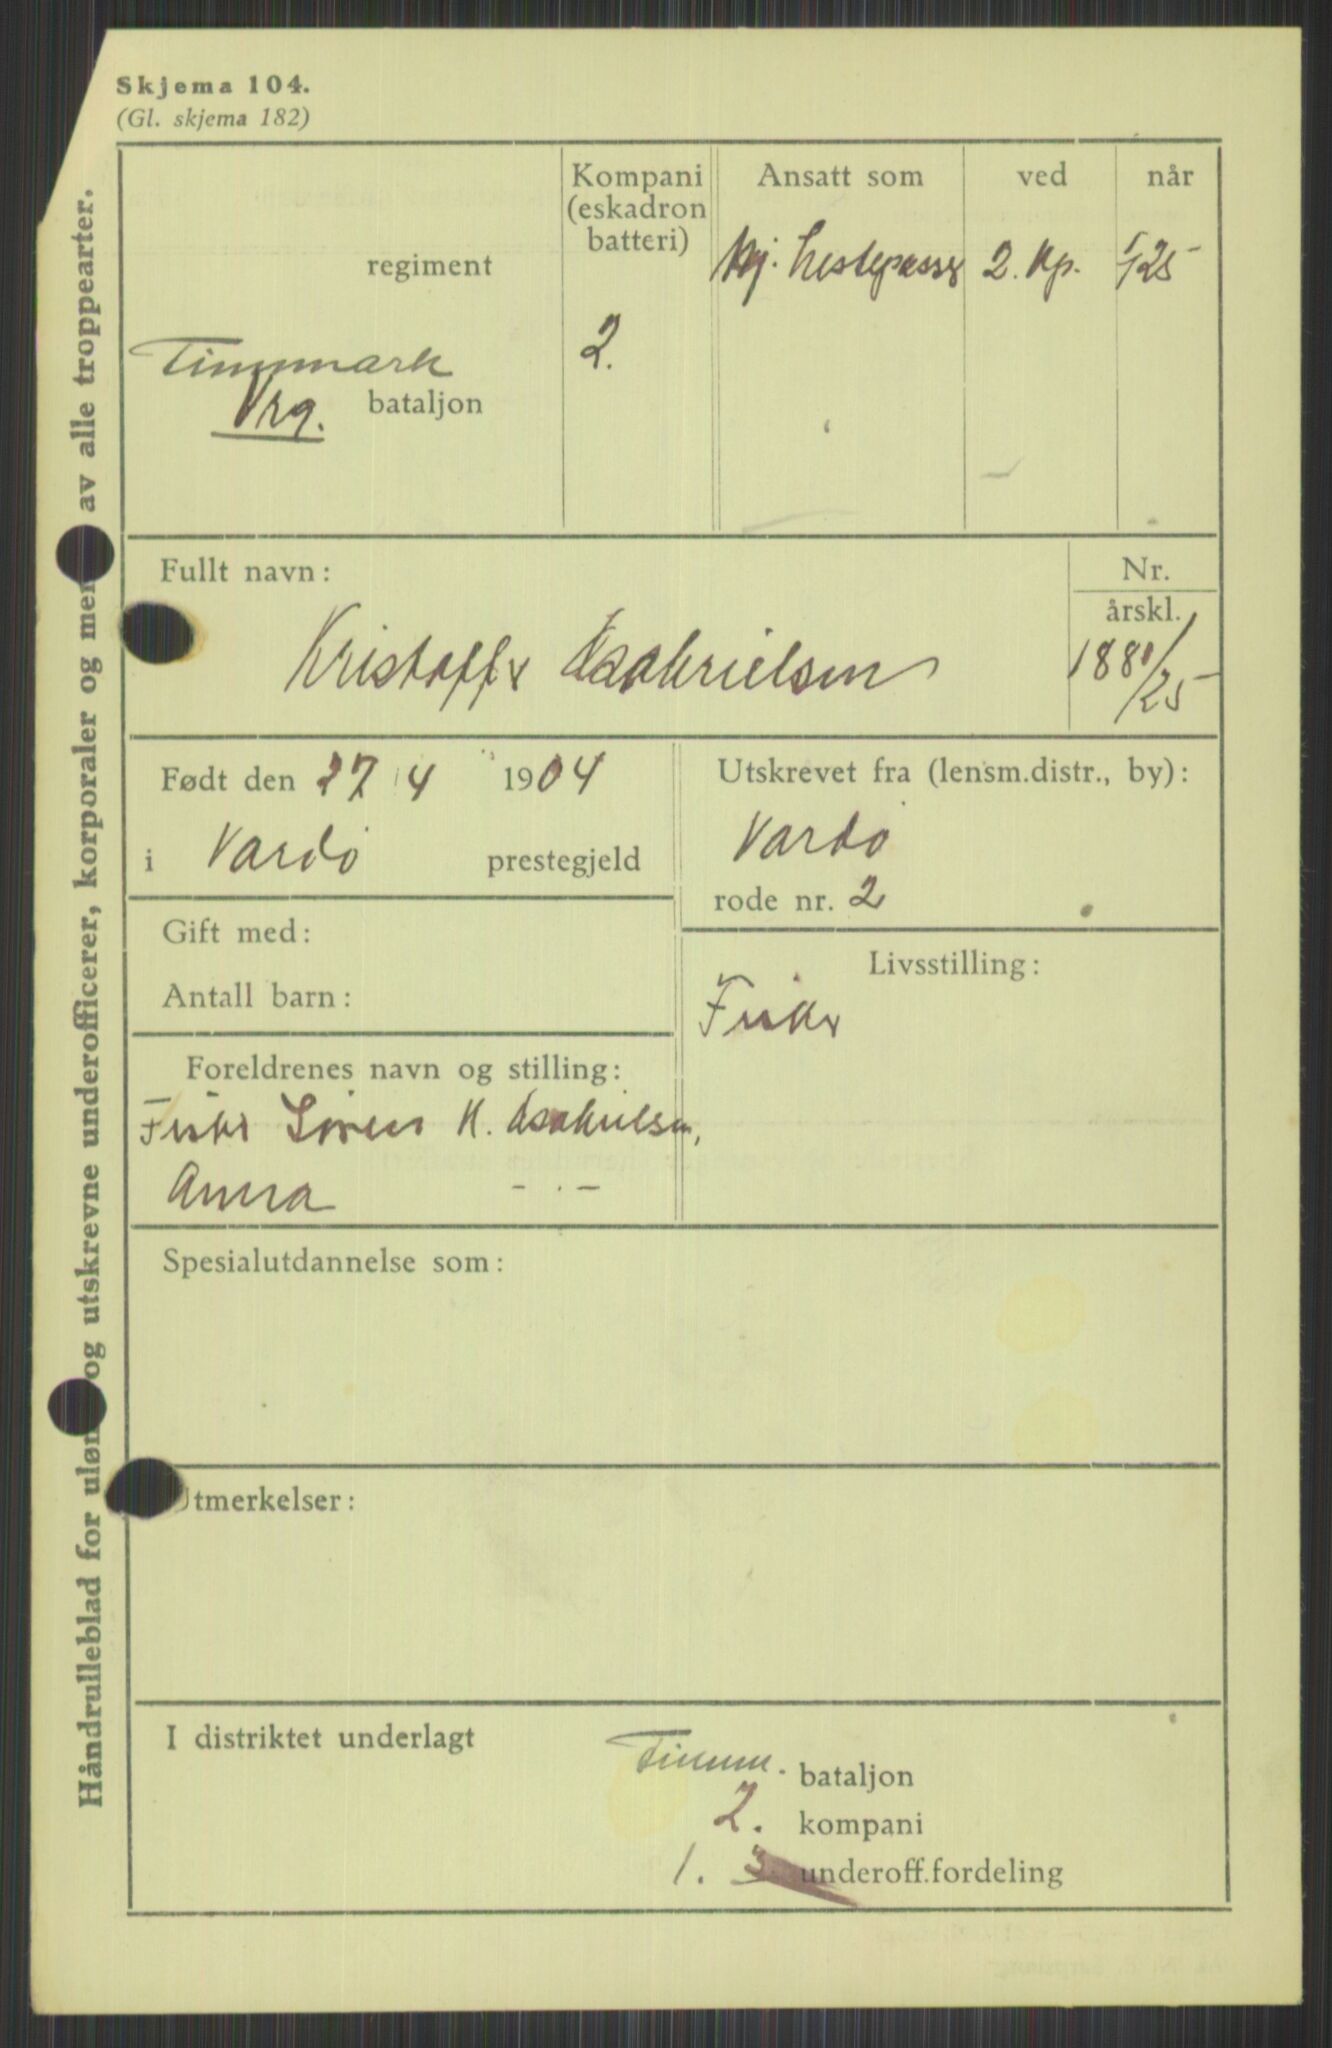 Skjema 104.
(Gl. skjema 182)
Håndrulleblad for uløn og utskrevne underofficerer, korporaler og men av alle troppearter.
regiment
Finnmark
Vrg. bataljon
Kompani
(eskadron
batteri)
2.
Ansatt som ved når
hestepasser 2. Kp. 1/25
Fullt navn:
Kristoffer
Nr.
årskl.
1881/25
Født den 27/4 1904
i Vardø prestegjeld
Utskrevet fra (lensm.distr., by):
Vardø
rode nr. 2
Gift med:
Antall barn:
Livsstilling:
Fisker
Foreldrenes navn og stilling:
Fisker Søren K.
Anna - . -
Spesialutdannelse som:
Utmerkelser:
I distriktet underlagt
Finnm. bataljon
2. kompani
1. 3. underoff.fordeling